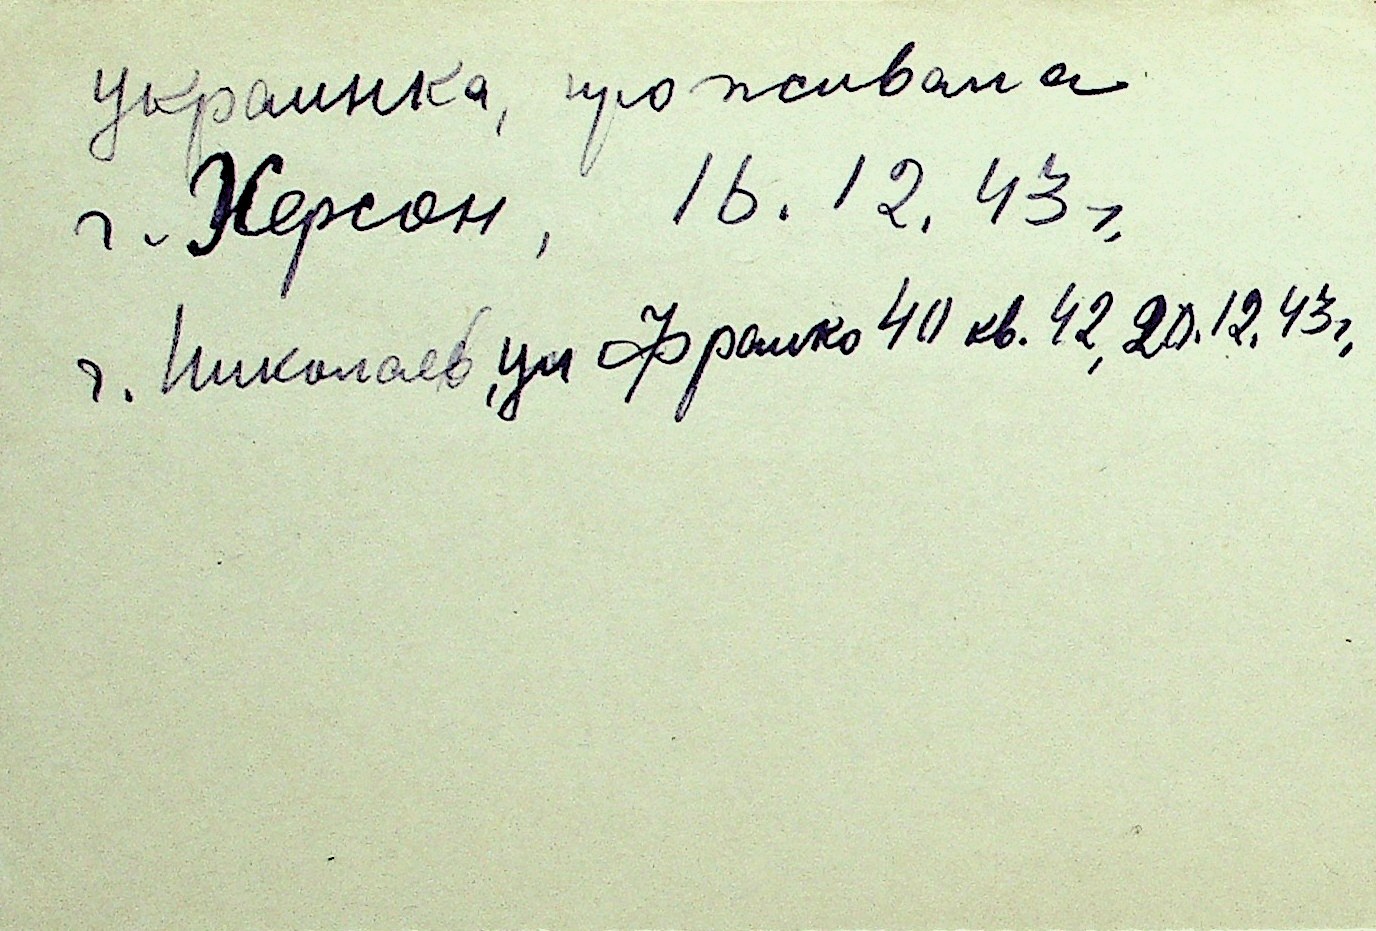 украинка, проживала
г. Херсон, 16.12.43г,
г. Николаев, ул Франко 40 кв. 42, 20.12.43г,